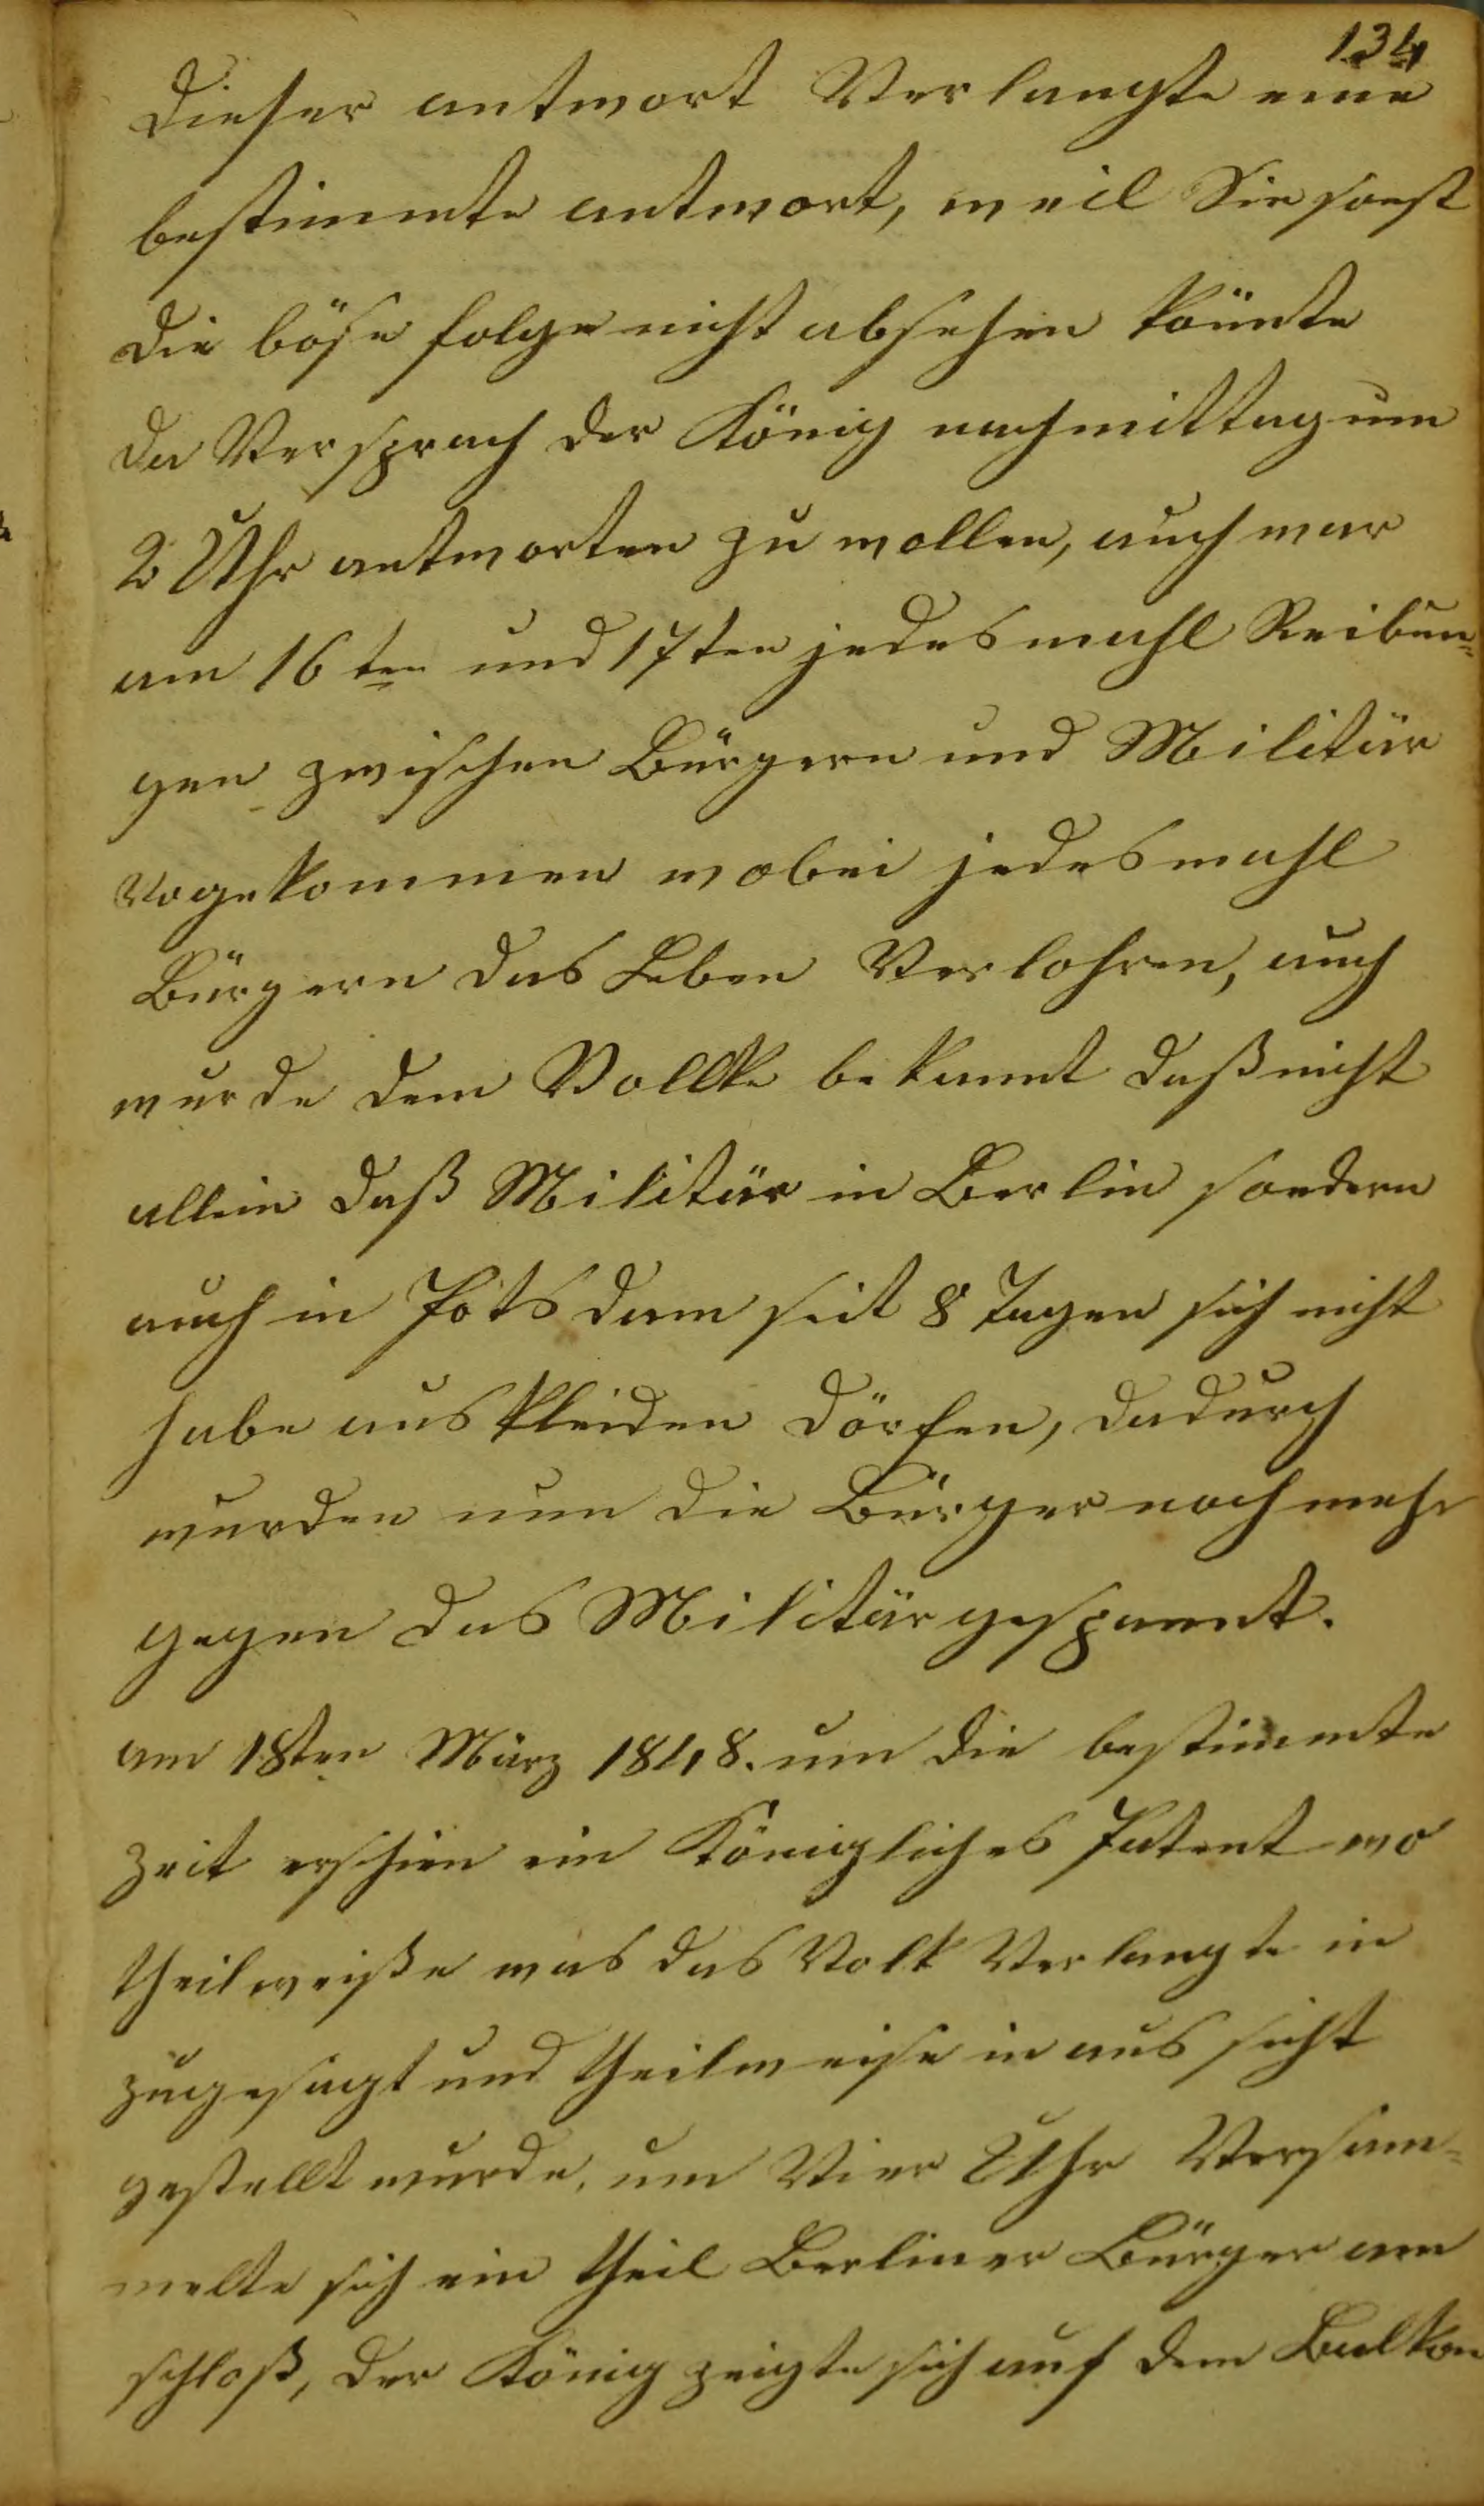 134
dieser antwort Verlangte eine
bestimmte antwort, weil Sie sonst
die böse folge nicht absehen könnte
da Versprach der König nachmittag um
2 Uhr antworten zu wollen, auch war
am 16ten und 17ten jedesmahl Reibun-
gen zwischen Bürgern und Militär
Vogekommen wobei jedesmahl
Bürgern das Leben Verlohren, auch
wurde dem Vollke bekannt daß nicht
allein daß Militär in Berlin sondern
auch in Potsdam seit 8 Tagen sich nicht
habe auskleiden dörfen, dadurch
wurden nun die Bürger noch mehr
gegen das Militär gespannt.
am 18ten März 1848. um die bestimmte
zeit erschien ein Königliches Patent wo
theilweiße was das Volk Verlangte in
zugesagt und theilweise in aus sicht
gestellt wurde, um Vier Uhr Versam-
melte sich ein theil Berliner Bürger am
schloß, der König zeigte sich auf dem Balkon